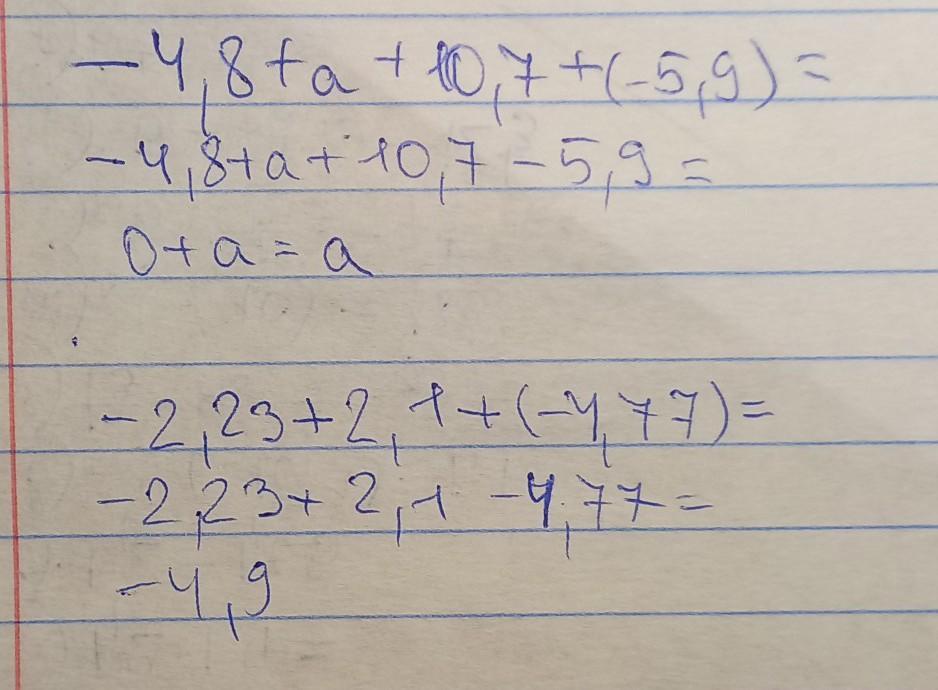 -4,8+a+10,7+(-5,9)=
-4,8+a+10,7-5,9=
0+a=a
-2,23+2,1+(-4,77)=
-2,23+2,1-4,77=
-4,9